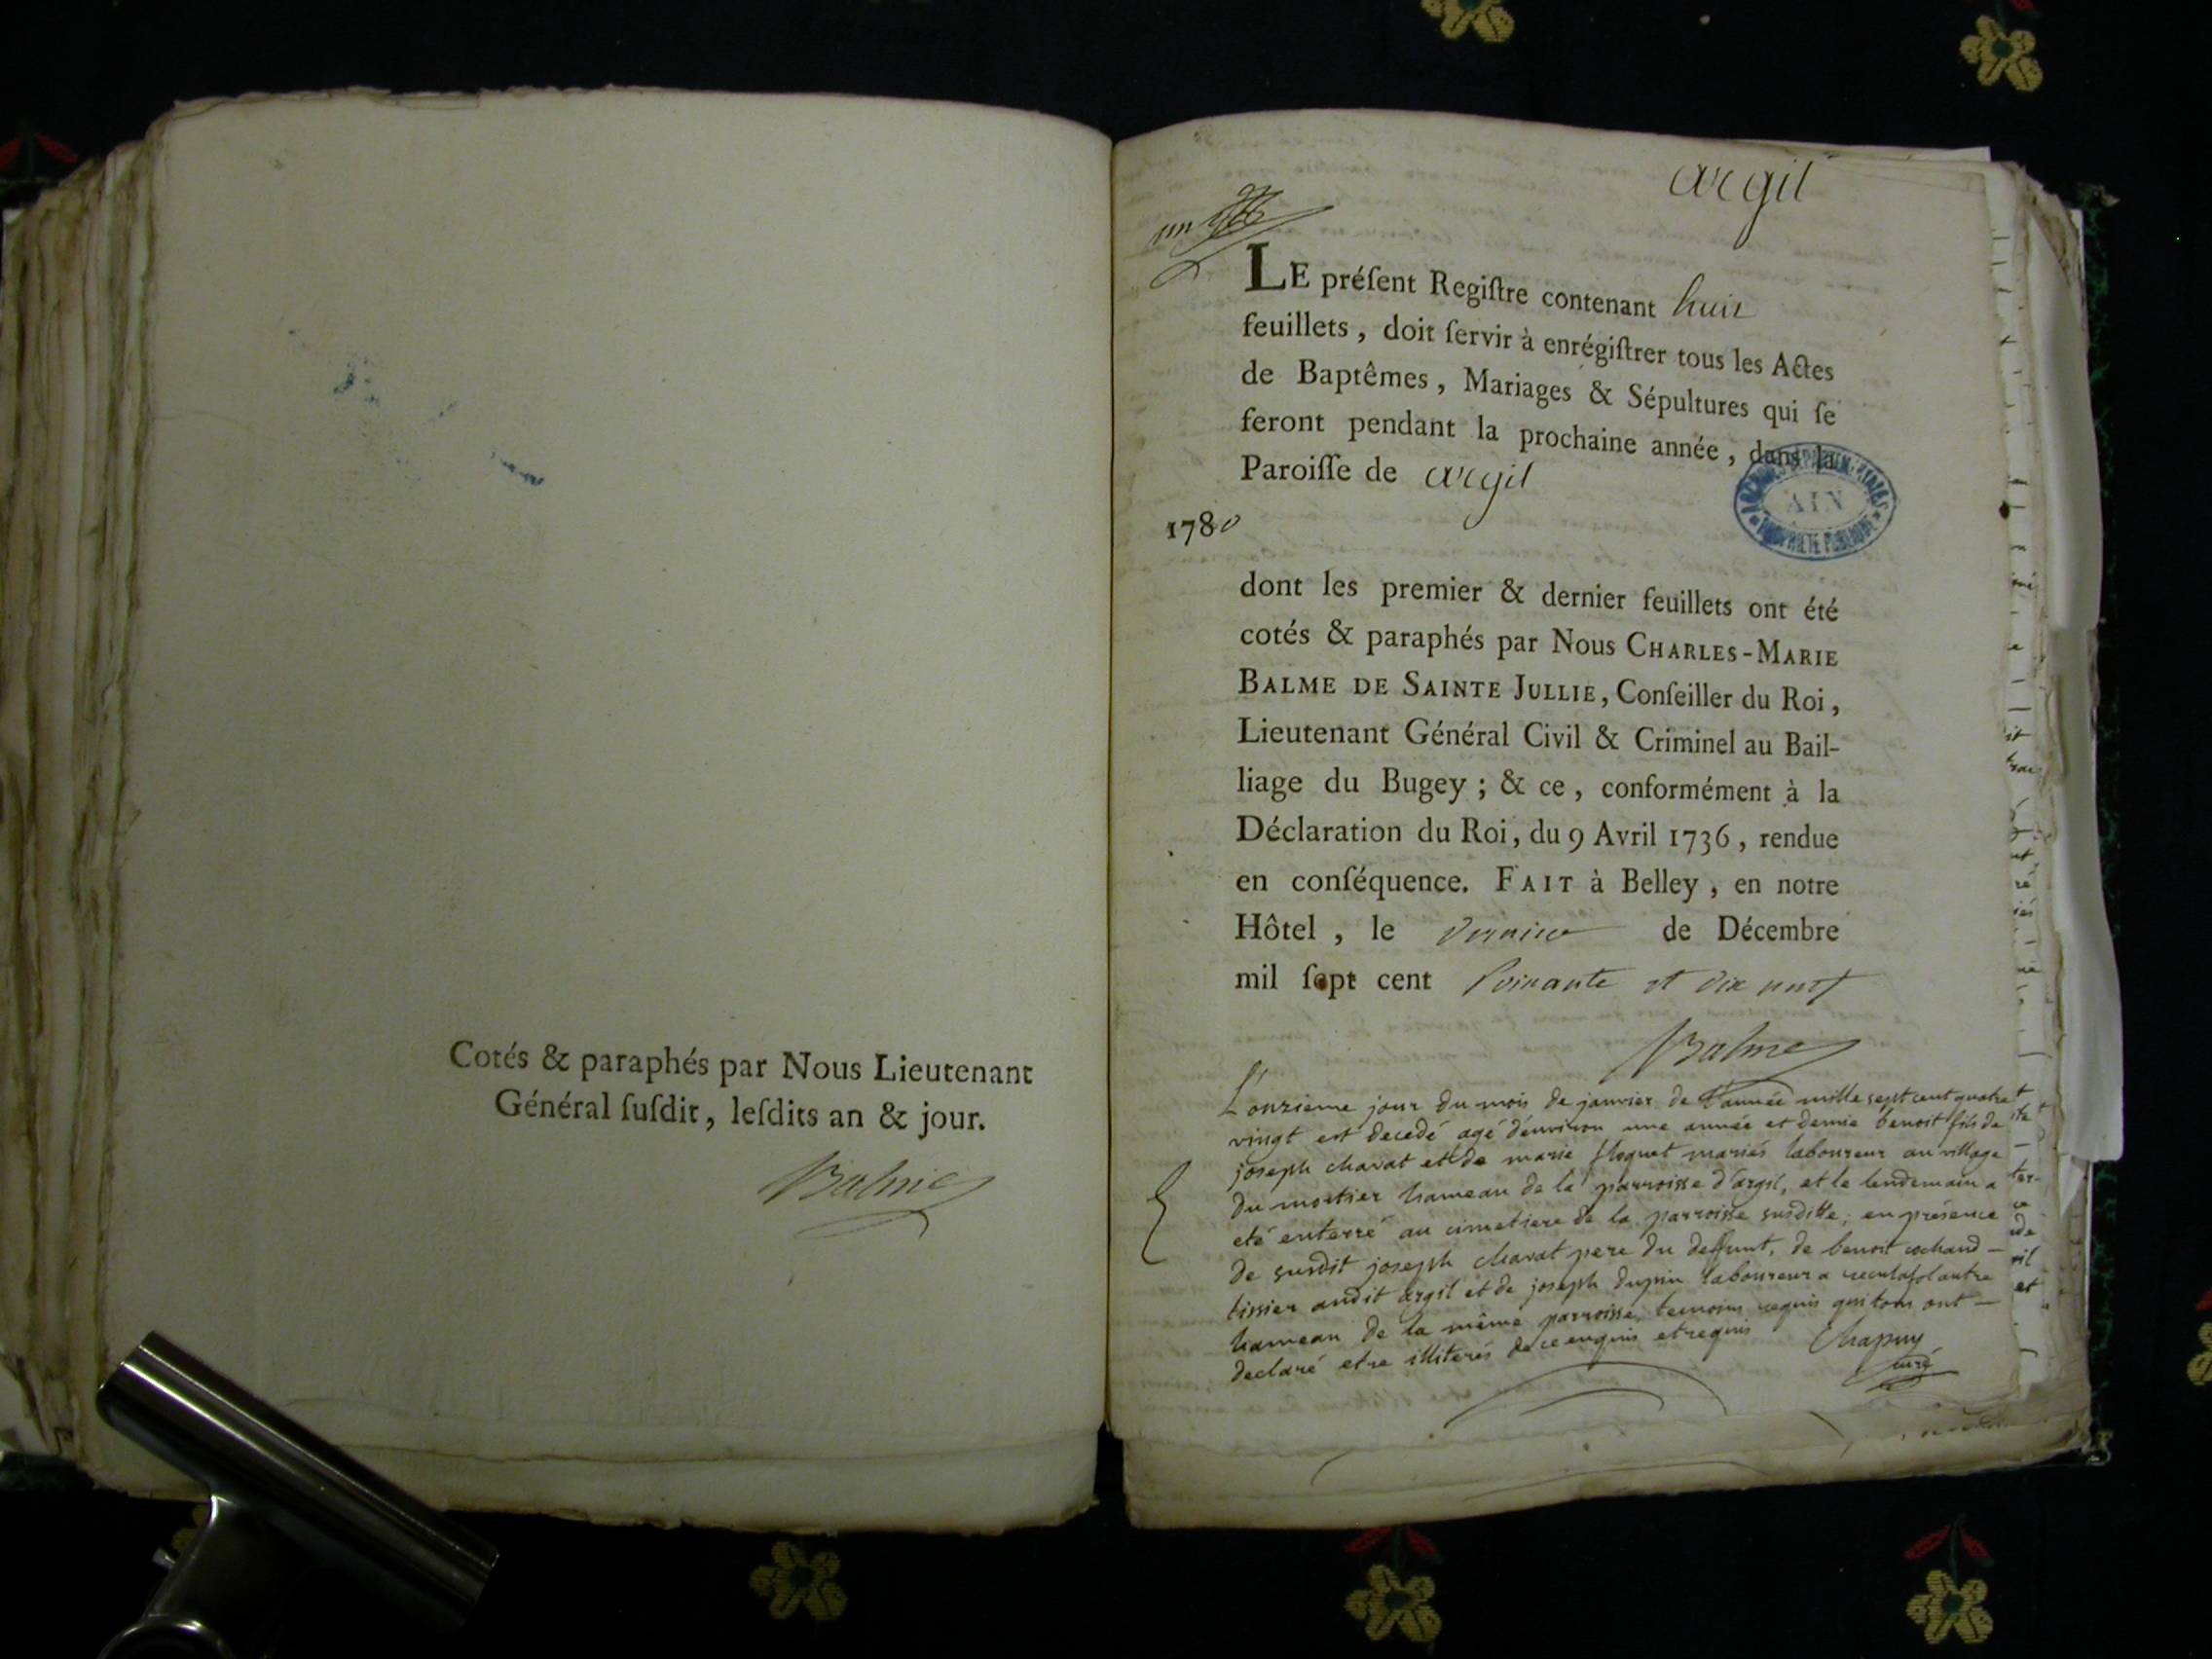 Cotés & paraphés par Nous Lieutenant
Général ſuſdit, leſdits an & jour.
Balme
argil
un
LE préſent Regiſtre contenant huit
feuillets, doit ſervir à enrégiſtrer tous les Actes
de Baptêmes, Mariages & Sépultures qui ſe
feront pendant la prochaine année, dans la
Paroiſſe de argil
1780
AIN
PROPRIÉTÉ PUBLIQUE
dont les premier & dernier feuillets ont été
cotés & paraphés par Nous CHARLES-MARIE
BALME DE SAINTE JULLIE, Conſeiller du Roi,
Lieutenant Général Civil & Criminel au Bail-
liage du Bugey; & ce, conformément à la
Déclaration du Roi, du 9 Avril 1736, rendue
en conſéquence. FAIT à Belley, en notre
Hôtel, le dernier de Décembre
mil ſept cent soixante et dix neuf
Balme
L'onzieme jour du mois de janvier de l'année mille sept cent quatre
vingt est decedé agé d'environ une année et demie benoit fils de
joseph charat et de marie mariés laboureur au village
du mortier hameau de la parroisse d'argil, et le lendemain a
eté enterré au cimetiere de la parroisse susditte, en présence
de susdit joseph charat pere du deffunt, de benoit cochand
tissier audit argil et de joseph dupin laboureur a reculafol autre
hameau de la même parroisse, temoins requis qui tous ont
declaré etre illiterés de ce enquis et requis Chapuy
curé